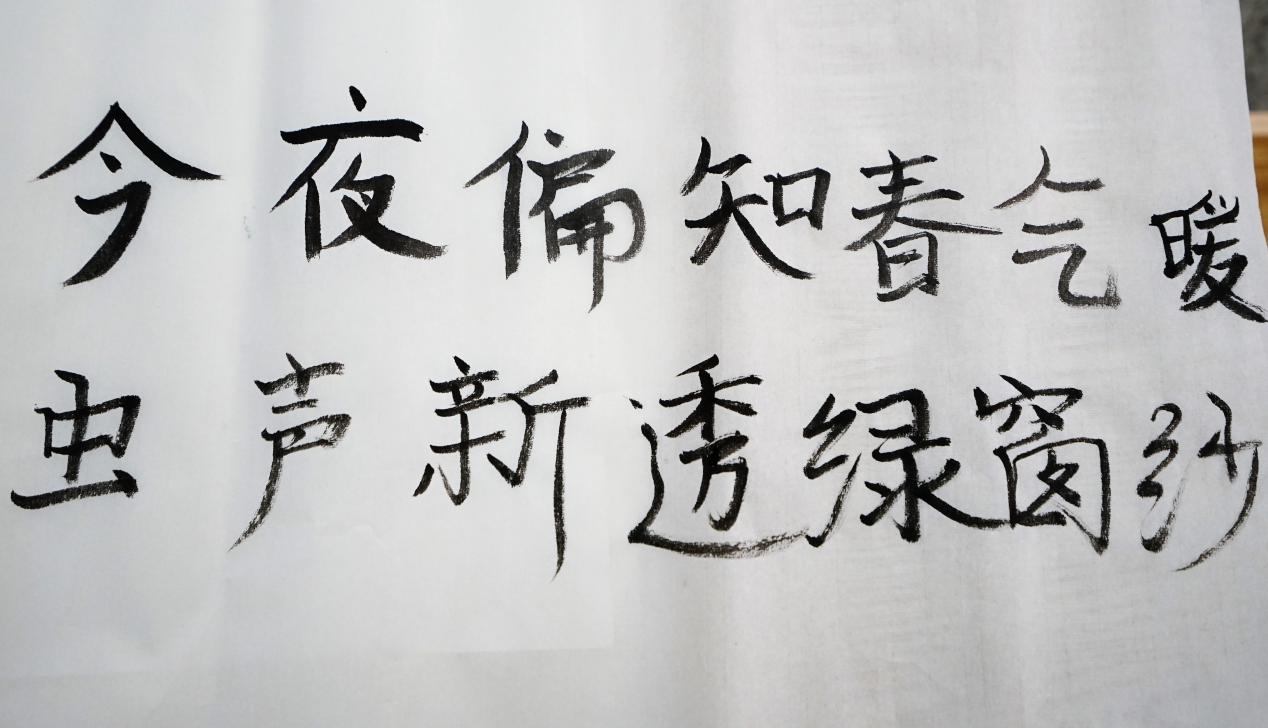 今夜偏知春气暖
虫声新透绿窗纱